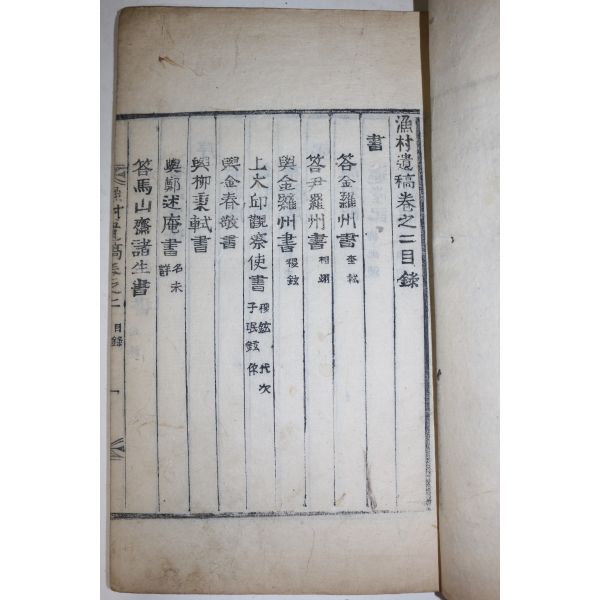 漁村遺稿卷之二目錄
書
答金羅州書 奎軾
答尹羅州書 相翊
與金羅州書 稷鉉
上大邱觀察使書 稷鉉代次子珉鉉作
與金春敬書
與柳秉軾書
與鄭述庵書 名未詳
答馬山齋諸生書
漁村遺稿卷之二 目錄 一